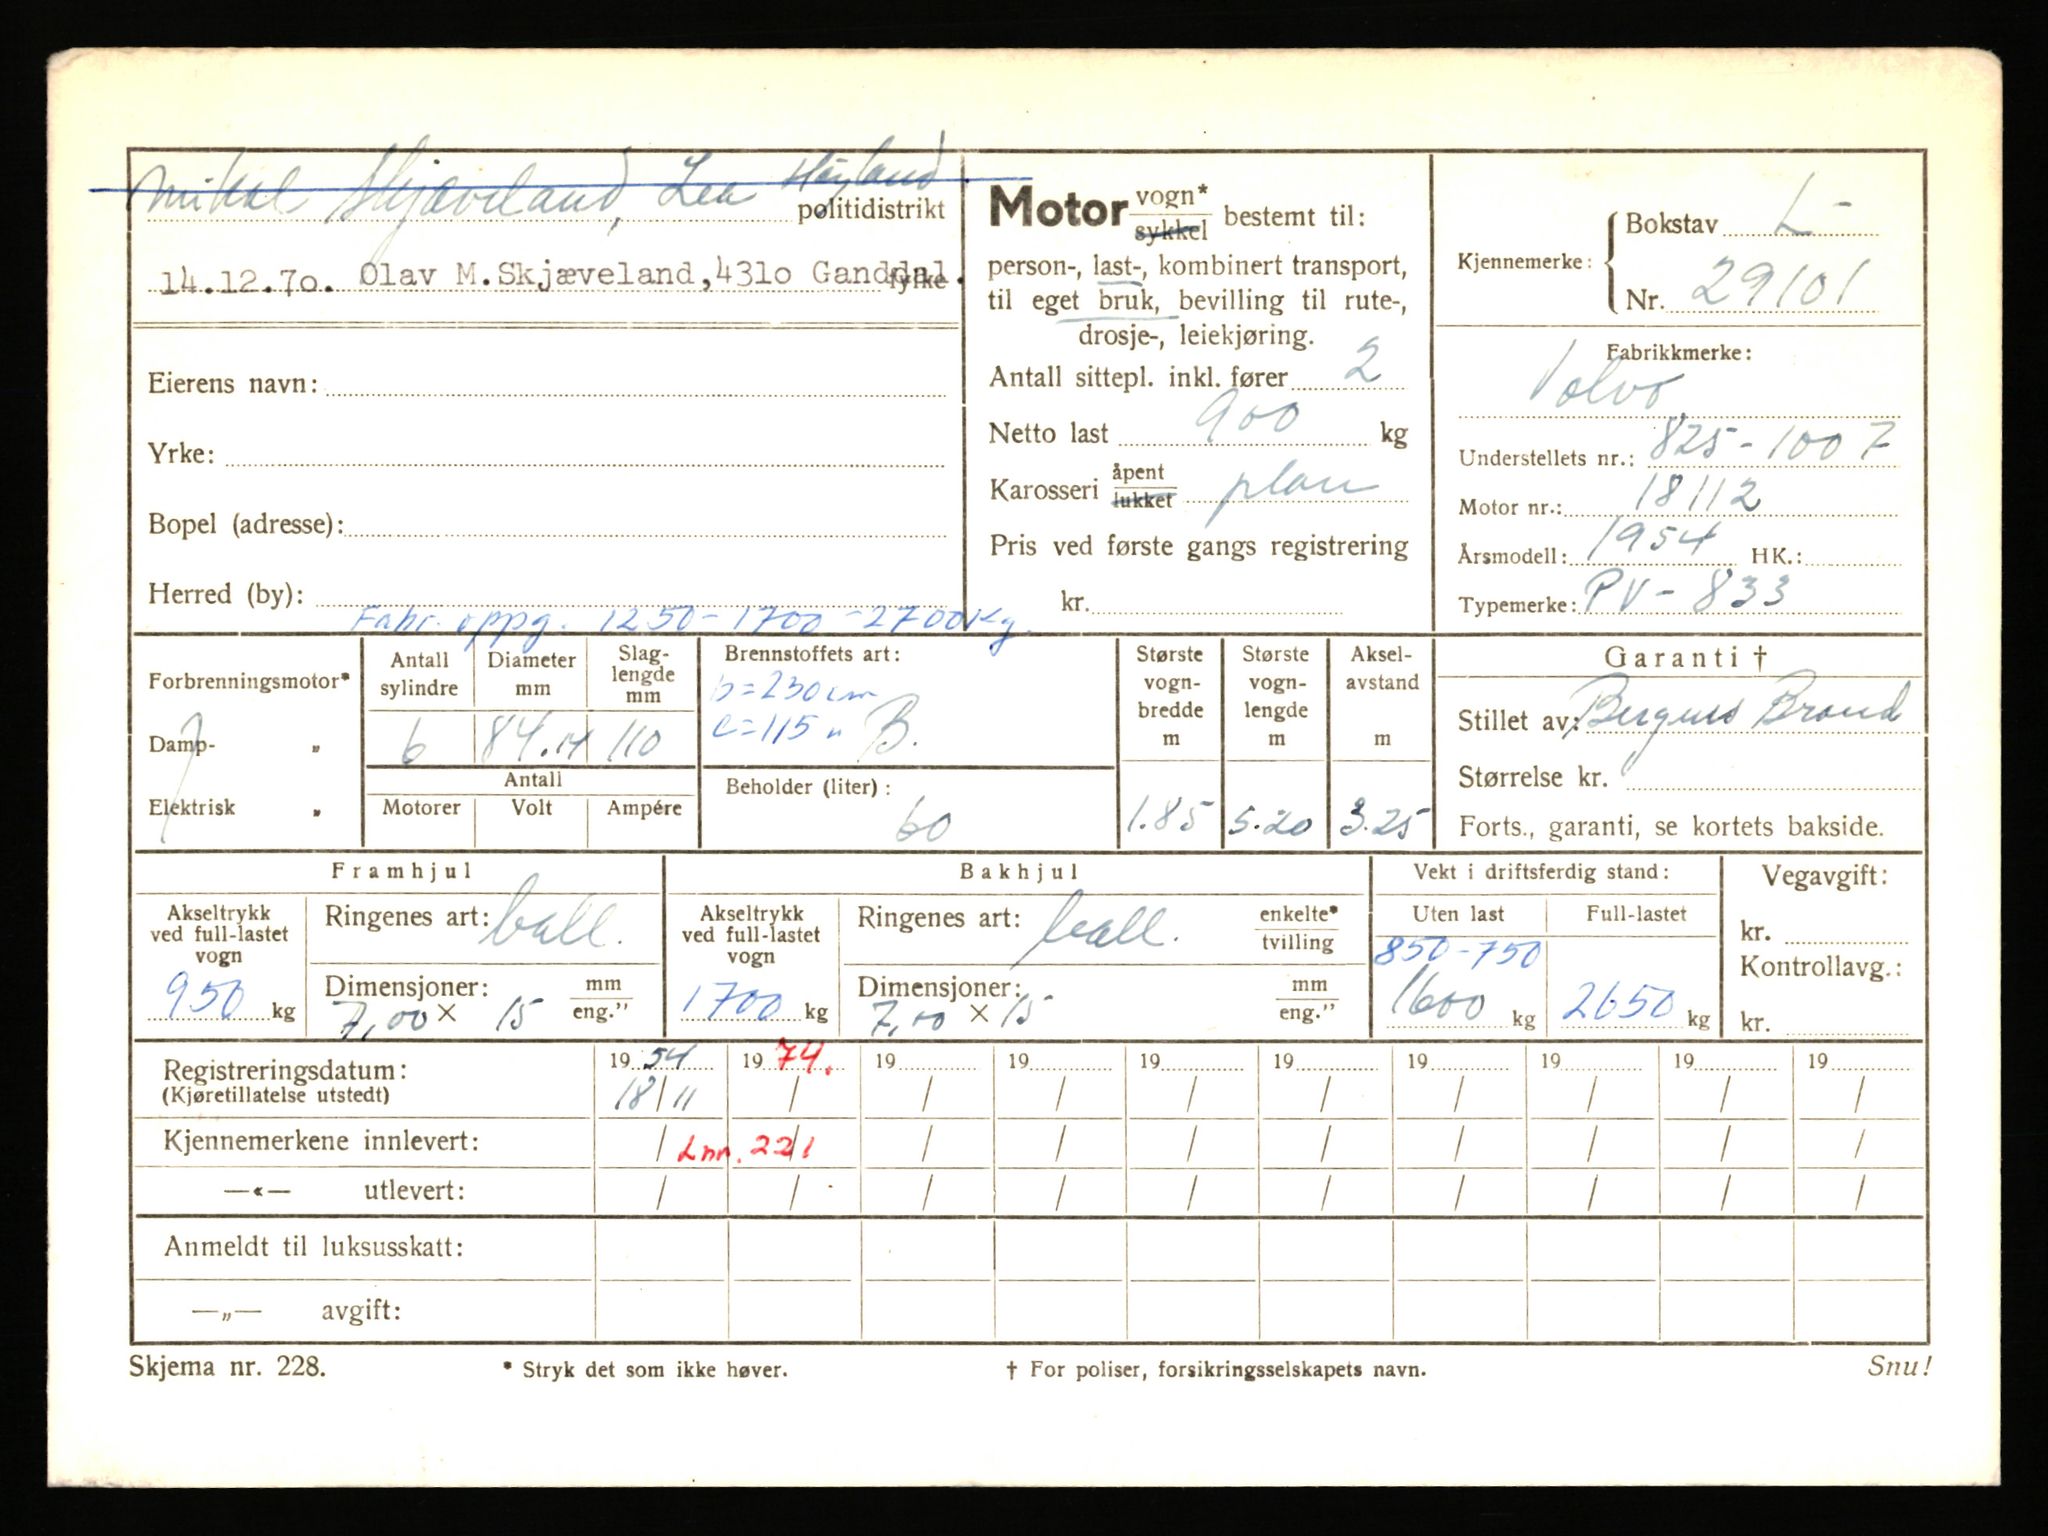 Mikal Skjæveland, Lea Høyland
politidistrikt
14.12.7o. Olav M.Skjæveland,431o Ganddal.
fylke
Eierens navn:
Yrke:
Bopel (adresse):
Herred (by):
Fabr. oppg. 1250-1700-2700kg.
Motor vogn*/sykkel bestemt til:
person-, last-, kombinert transport,
til eget bruk, bevilling til rute-,
drosje-, leiekjøring.
Antall sittepl. inkl. fører 2
Netto last 900 kg
Karosseri åpent/lukket plan
Pris ved første gangs registrering
kr.
Kjennemerke: Bokstav L-
Nr. 29101
Fabrikkmerke:
Volvo
Understellets nr.: 825-1007
Motor nr.: 18112
Årsmodell: 1954 HK.:
Typemerke: PV-833
Forbrenningsmotor*
Damp- „
Elektrisk „
Antall sylindre 6
Diameter mm 84.14
Slag-lengde mm 110
Antall
Motorer Volt Ampére
Brennstoffets art:
b=230cm
c=115 "
B.
Beholder (liter):
60
Største vogn-bredde m 1.85
Største vogn-lengde m 5.20
Aksel-avstand m 3.25
Garanti †
Stillet av: Bergens Brand
Størrelse kr.
Forts., garanti, se kortets bakside.
Framhjul
Akseltrykk ved full-lastet vogn
950 kg
Ringenes art: ball.
Dimensjoner: mm/eng."
7,00 × 15
Bakhjul
Akseltrykk ved full-lastet vogn
1700 kg
Ringenes art: ball. enkelte*/tvilling
Dimensjoner: mm/eng."
7,00 × 15
Vekt i driftsferdig stand:
Uten last Full-lastet
850-750
1600 kg 2650 kg
Vegavgift:
kr.
Kontrollavg.:
kr.
Registreringsdatum: 19 54 19 74. 19 19 19 19 19 19 19 19
(Kjøretillatelse utstedt) 18/11 / / / / / / / / /
Kjennemerkene innlevert: / Lnr. 221 / / / / / / / / /
—«— utlevert: / / / / / / / / / /
Anmeldt til luksusskatt:
—„— avgift:
Skjema nr. 228. * Stryk det som ikke høver. † For poliser, forsikringsselskapets navn. Snu!